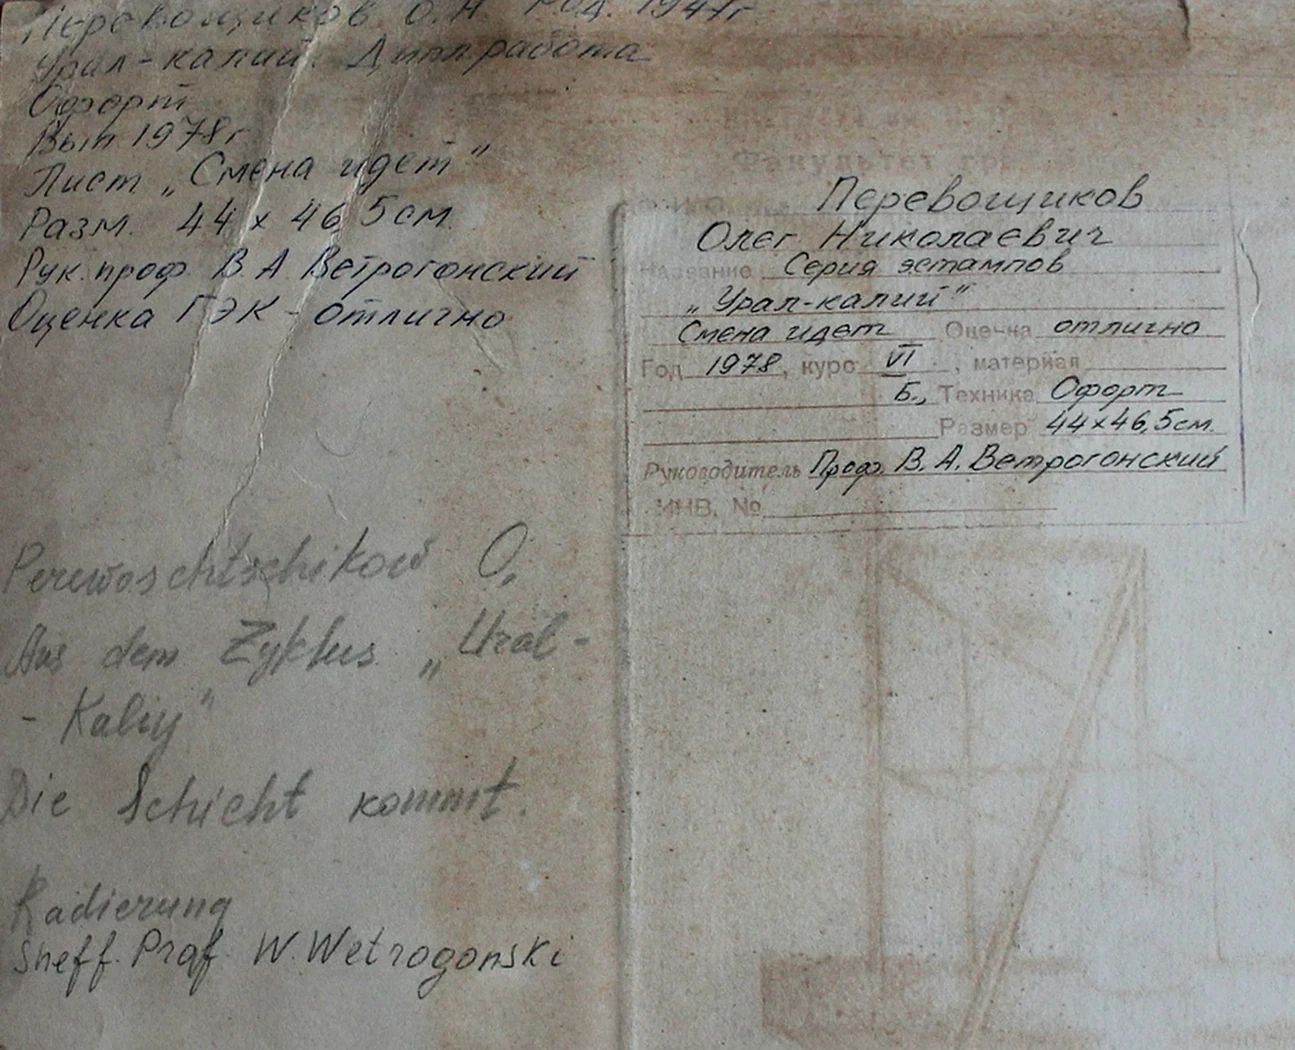 Перевощиков О.Н. Род. 1947г
Урал-калий. Дипл работа
Офорт
Вып. 1978г
Лист „Смена идет"
Разм. 44 х 46,5 см.
Рук. проф. В А Ветрогонский
Оценка ГЭК - отлично
Perewoschtschikow O.
Aus dem Zyklus „Ural-
- Kaliy"
Die Schicht kommt.
Radierung
Sheff. Prof. W. Wetrogonski
Факультет
Ф.И.О. Перевощиков
Олег Николаевич
Название Серия эстампов
„Урал-калий"
Смена идет Оценка отлично
Год 1978, курс VI, материал
Б., Техника Офорт
Размер 44х46,5 см.
Руководитель Проф. В. А. Ветрогонский
ИНВ. №